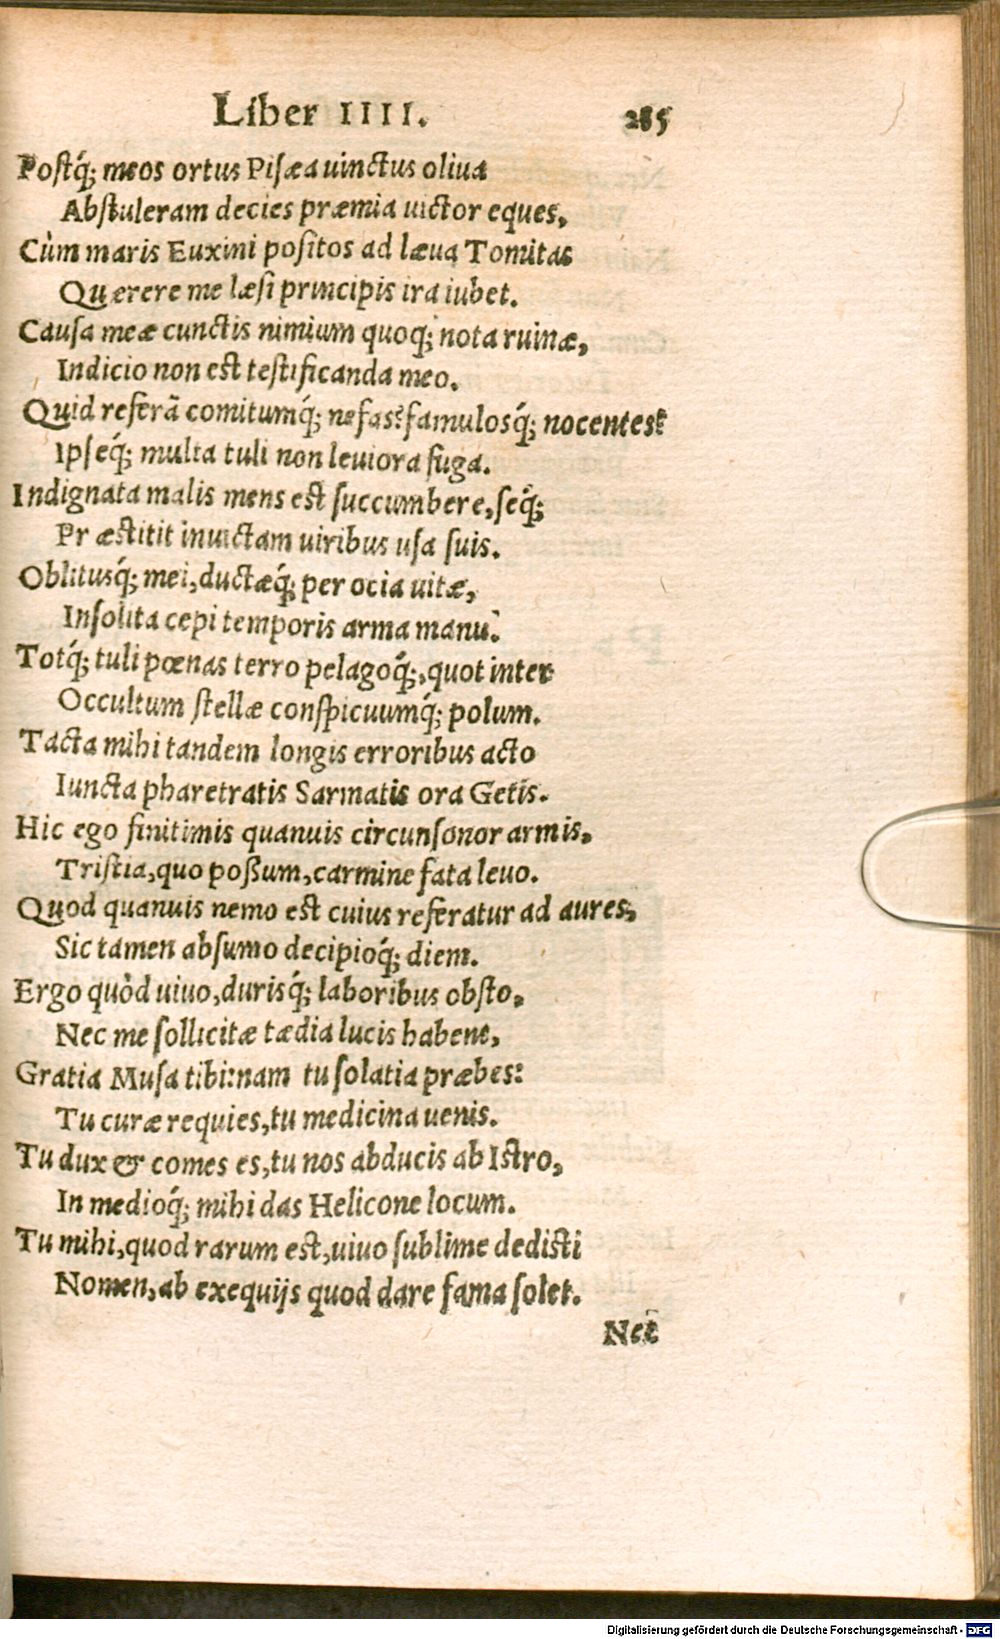 Liber IIII. 285
Postq́; meos ortus Pisæa uinctus oliua
Abstuleram decies præmia uictor eques,
Cùm maris Euxini positos ad læua Tomitas
Quærere me læsi principis ira iubet.
Causa meæ cunctis nimium quoq; nota ruinæ,
Indicio non est testificanda meo.
Quid referā comitumq́; nefas? famulosq́; nocentes?
Ipseq́; multa tuli non leuiora fuga.
Indignata malis mens est succumbere, seq́;
Præstitit inuictam uiribus usa suis.
Oblitusq́; mei, ductæq́; per ocia uitæ,
Insolita cepi temporis arma manu.
Totq́; tuli pœnas terro pelagoq́;, quot inter
Occultum stellæ conspicuumq́; polum.
Tacta mihi tandem longis erroribus acto
Iuncta pharetratis Sarmatis ora Getis.
Hic ego finitimis quanuis circunsonor armis,
Tristia, quo possum, carmine fata leuo.
Quod quanuis nemo est cuius referatur ad aures,
Sic tamen absumo decipioq́; diem.
Ergo quòd uiuo, durisq́; laboribus obsto,
Nec me sollicitæ tædia lucis habent,
Gratia Musa tibi: nam tu solatia præbes:
Tu curæ requies, tu medicina uenis.
Tu dux & comes es, tu nos abducis ab Istro,
In medioq́; mihi das Helicone locum.
Tu mihi, quod rarum est, uiuo sublime dedisti
Nomen, ab exequijs quod dare fama solet.
Nec
Digitalisierung gefördert durch die Deutsche Forschungsgemeinschaft - DFG